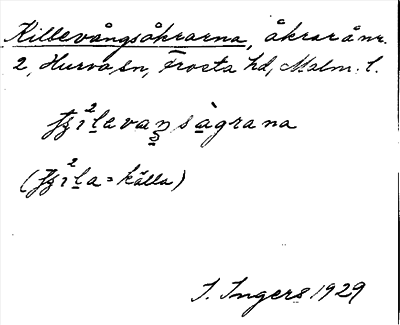 Killevångsåkrarna, åkrar å nr.
2, Hurva sn, Frosta hd, Malm. l.
ꞔı²levaŋsàgrana
(ꞔı²la = källa)
I. Ingers 1929